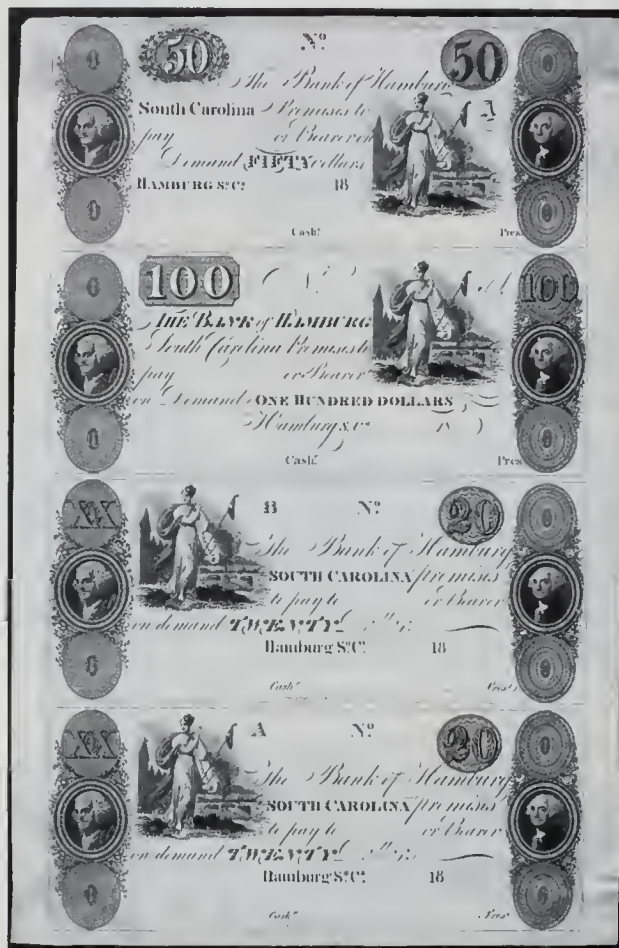 0 50 Nº 50 0
The Bank of Hamburg
South Carolina Promises to A
pay or Bearer on
Demand FIFTY Dollars
HAMBURG Sº. Cª. 18
0 0
Cashr. Prest
0 100 Nº A 100
THE BANK of HAMBURG
South Carolina Promises to
pay or Bearer
on Demand ONE HUNDRED DOLLARS
Hamburg S. Ca. 18
0 0
Cashr. Prest
XX B Nº 20 0
The Bank of Hamburg
SOUTH CAROLINA promises
to pay to or Bearer
on demand TWENTY Dolls.
Hamburg Sº. Cª. 18
0 0
Cashr. Prest
XX A Nº 20 0
The Bank of Hamburg
SOUTH CAROLINA promises
to pay to or Bearer
on demand TWENTY Dolls.
Hamburg Sº. Cª. 18
0 0
Cashr. Prest